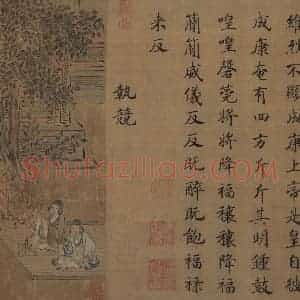 維烈不顯成康上帝是皇自彼
成康奄有四方斤斤其明鍾鼓
喤喤磬筦將將降福穰穰降福
簡簡威儀反反既醉既飽福祿
来反
執競